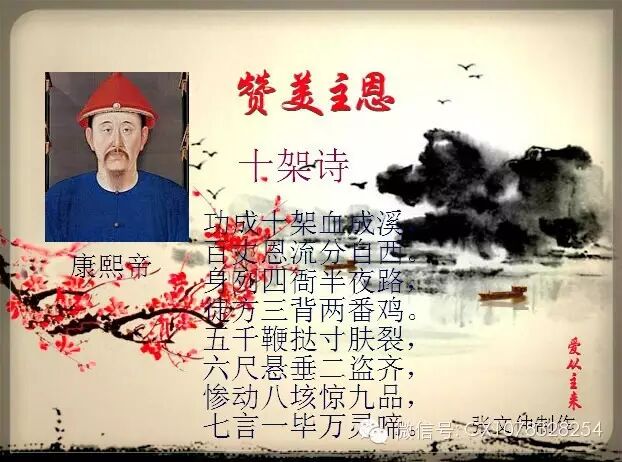 赞美主恩
十架诗
康熙帝
功成十架血成溪，
百丈恩流分自西。
身列四衙半夜路，
徒方三背两番鸡。
五千鞭挞寸肤裂，
六尺悬垂二盗齐，
惨动八垓惊九品，
七言一毕万灵啼。
爱从主来
张文伟制作
微信号: GX1078328254